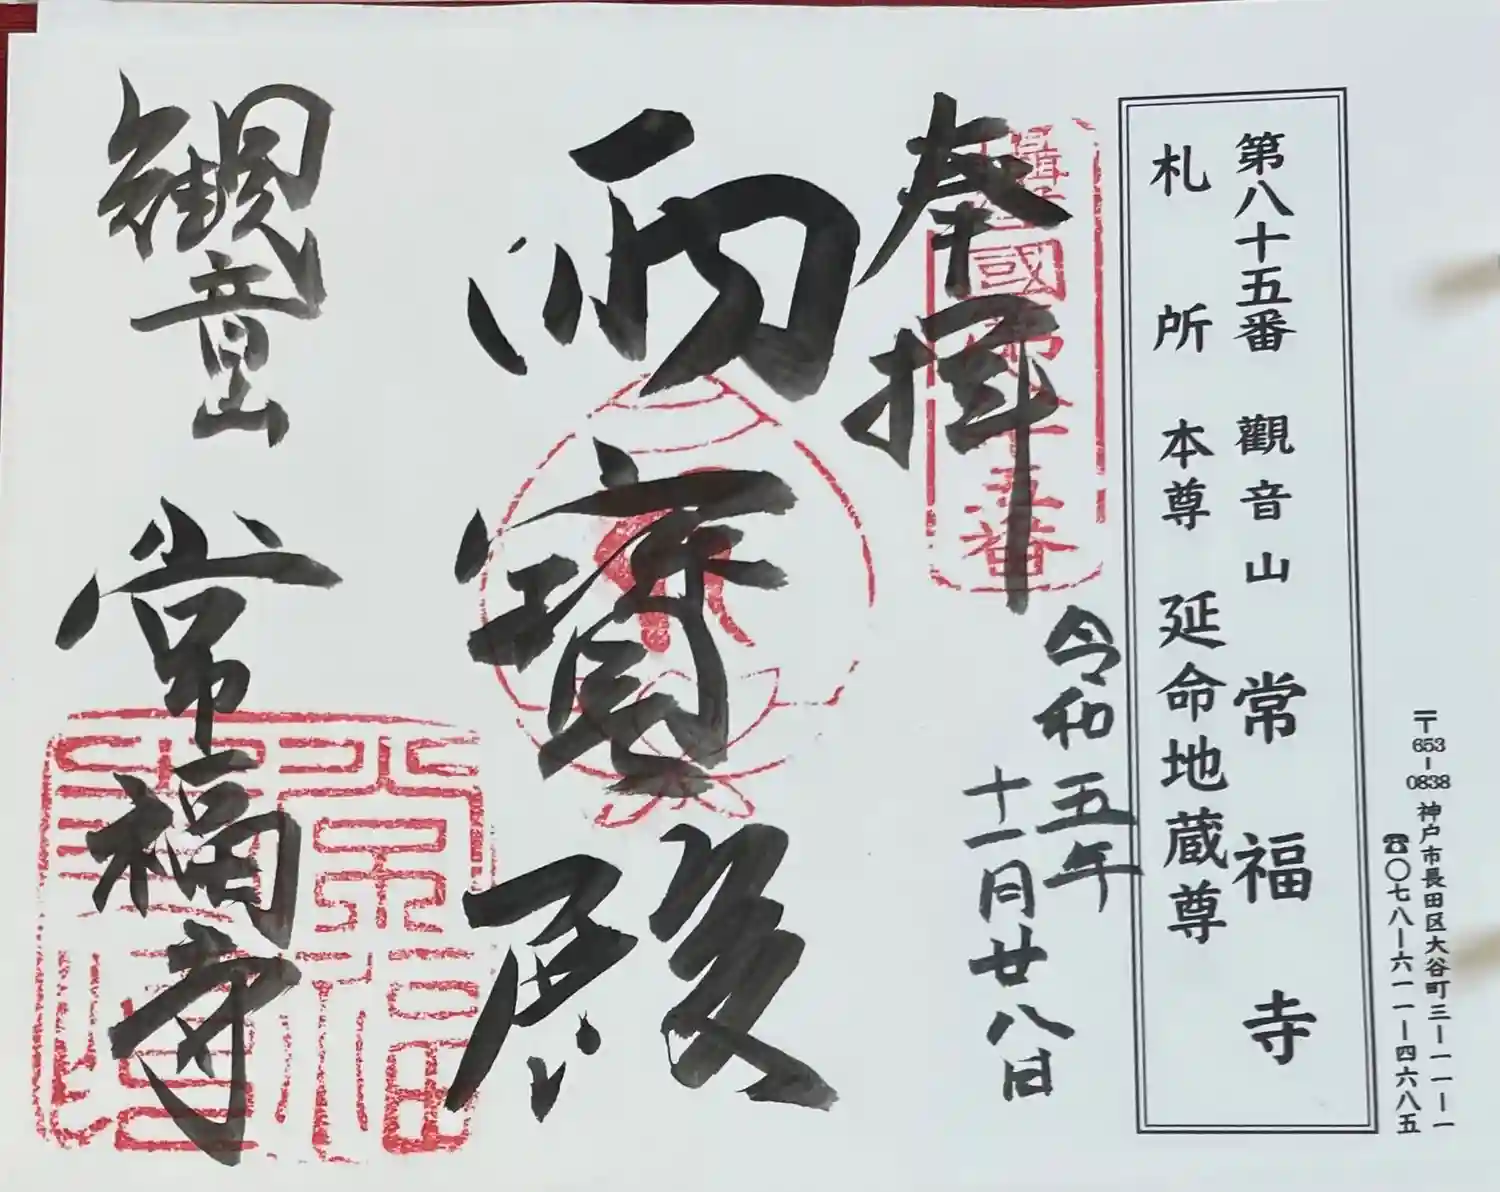 〒653-0838 神戸市長田区大谷町三ー一一ー一
☎〇七八ー六一一ー四六八五
第八十五番 觀音山 常福寺
札所 本尊 延命地蔵尊
奉拝
令和五年
十一月廿八日
攝津國八十五番
両寳殿
觀音山 常福寺